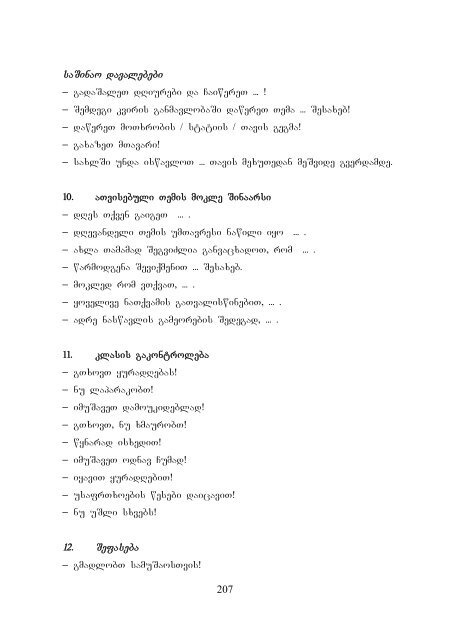 საშინაო დავალებები
– გადაშალეთ დღიურები და ჩაიწერეთ ... !
– შემდეგი კვირის განმავლობაში დაწერეთ თემა ... შესახებ!
– დაწერეთ მოთხრობის / სტატიის / თავის გეგმა!
– გახაზეთ მთავარი!
– სახლში უნდა ისწავლოთ ... თავის მეხუთედან მეშვიდე გვერდამდე.
10. ათვისებული თემის მოკლე შინაარსი
– დღეს თქვენ გაიგეთ ... .
– დღევანდელი თემის უმთავრესი ნაწილი იყო ... .
– ახლა თამამად შეგვიძლია განვაცხადოთ, რომ ... .
– წარმოდგენა შევიქმენით ... შესახებ.
– მოკლედ რომ ვთქვათ, ... .
– ყოველივე ნათქვამის გათვალისწინებით, ... .
– ადრე ნასწავლის გამეორების შედეგად, ... .
11. კლასის გაკონტროლება
– გთხოვთ ყურადღებას!
– ნუ ლაპარაკობთ!
– იმუშავეთ დამოუკიდებლად!
– გთხოვთ, ნუ ხმაურობთ!
– წყნარად ისხედით!
– იმუშავეთ ოდნავ ჩუმად!
– იყავით ყურადღებით!
– უსაფრთხოების წესები დაიცავით!
– ნუ უშლი სხვებს!
12. შეფასება
– გმადლობთ სამუშაოსთვის!
207